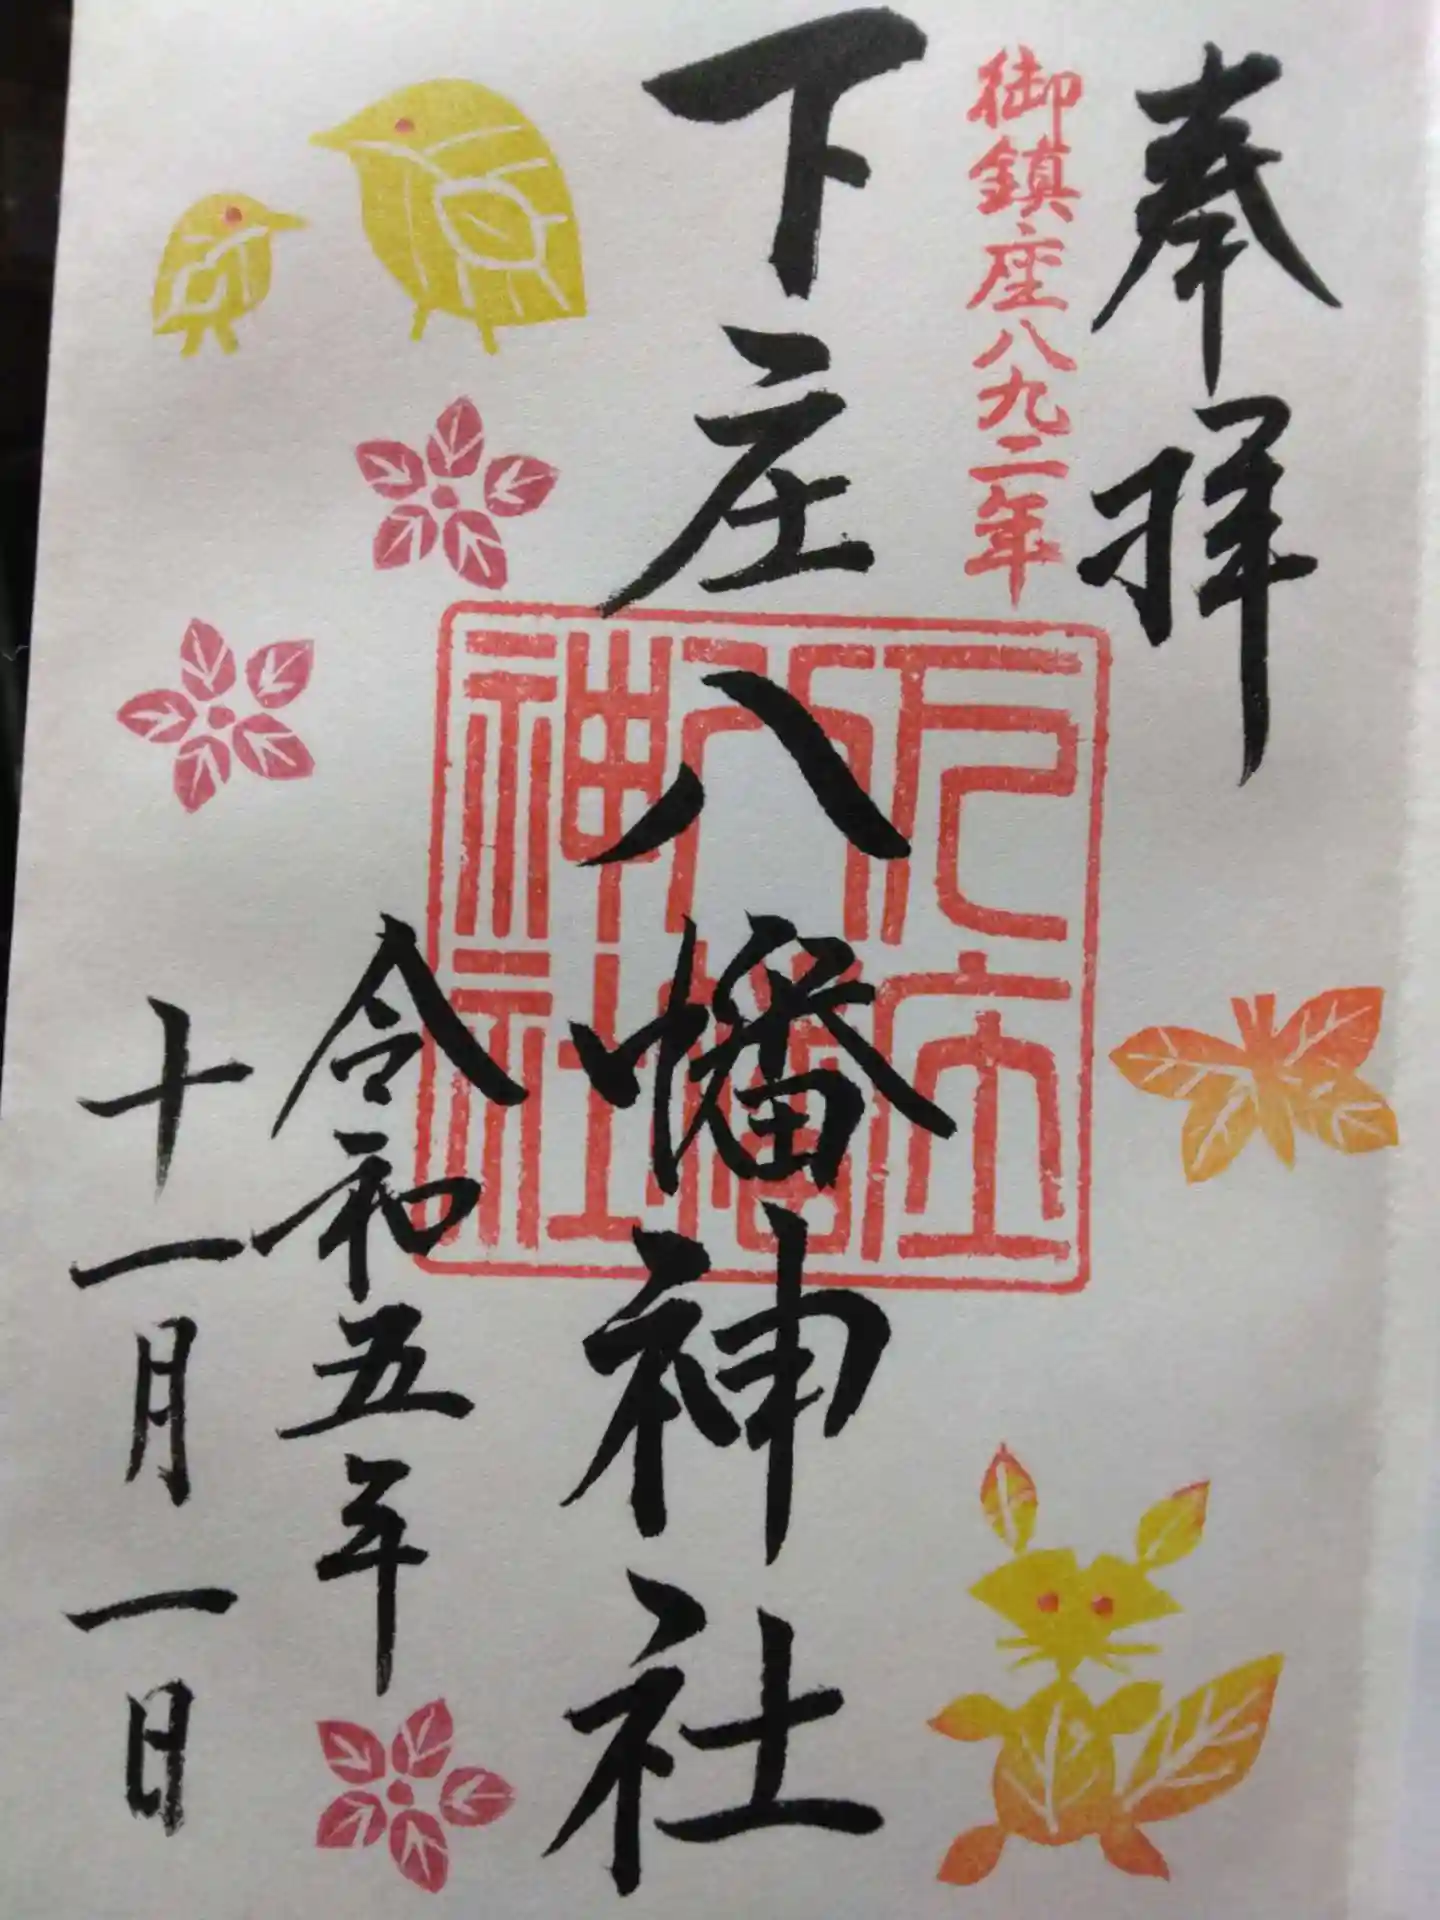 奉拝
御鎮座八九二年
下庄八幡神社
下庄
八幡
神社
令和五年
十一月一日